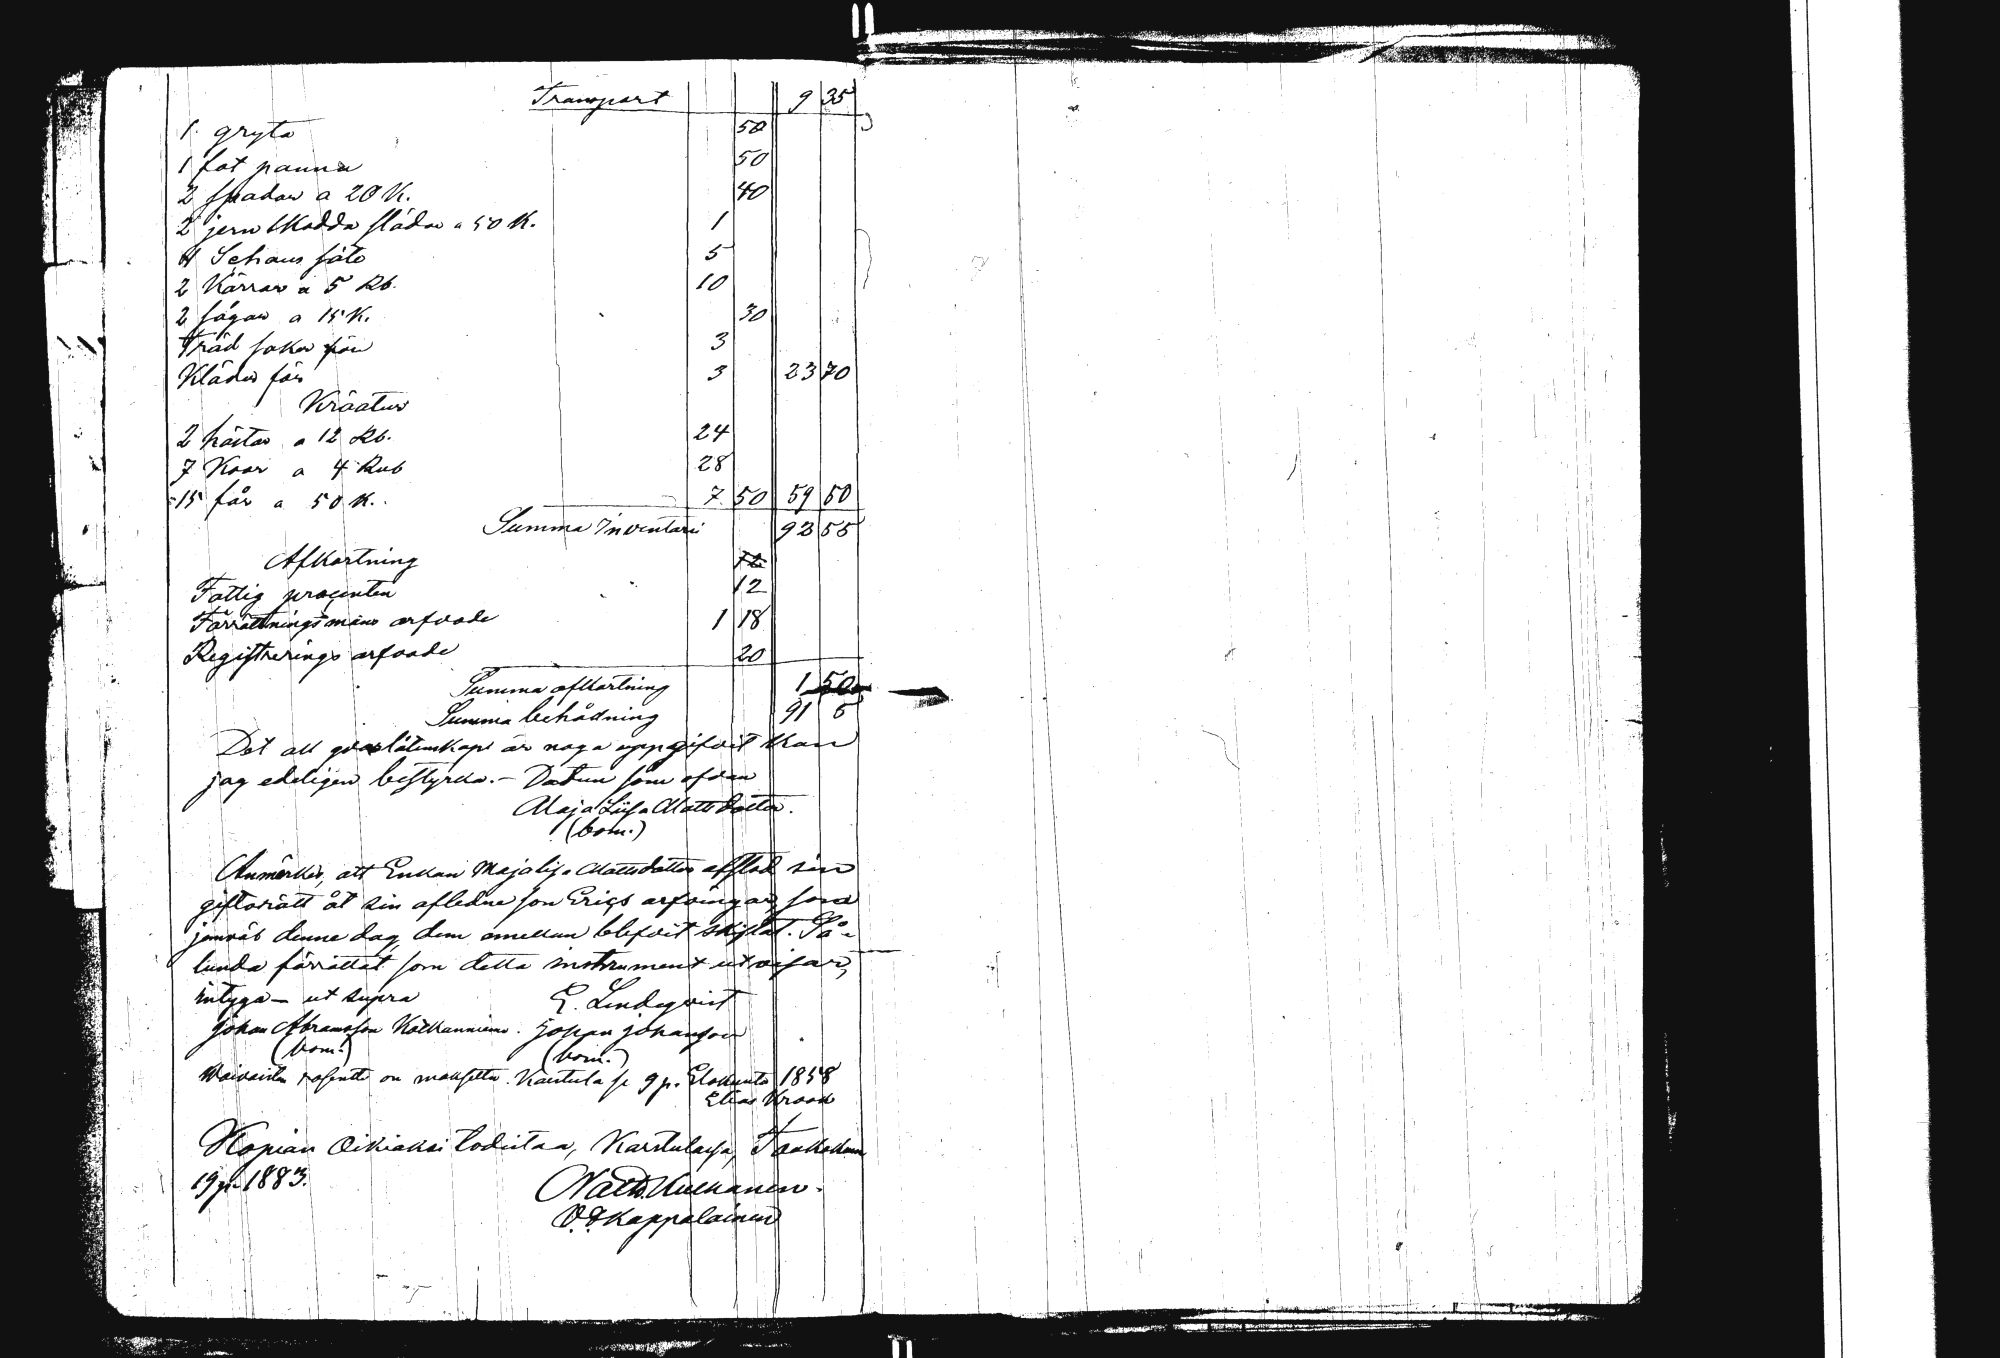 Transport 9 35
1 gryta 50
1 fat panna 50
2 spadar a 20 K. 40
2 jern skodda slädar a 50 K. 1
4 5
2 Kärror a 5 Rb. 10
2 sågar a 15 K. 30
Träd saker för 3
Kläder för 3 23 70
Kräatur
2 hästar a 12 Rb. 24
7 Koor a 4 Rub 28
15 får a 50 K. 7 50 59 50
Summa Inventari 92 55
Afkortning
Fattig procenten 12
Förrättningsmäns arfvode 1 18
Registrerings arfvode 20
Summa afkortning 1 50
Summa behådning 91 5
Det all qvarlåtenskap är noga uppgifvit kan
jag edeligen bestyrka. – Datum som ofvan
Maja Lisa Mattsdotter.
(bom.)
Anmärkes, att Enkan Maja Lisa Mattsdotter afstod sin
giftorätt åt sin aflidne son Erics arfvingar, som
jemväl denne dag, dem emellan blefvit skiftat. Så-
lunda förrättat som detta instrument utvisar,
intyga – ut supra E. Lindeqvist
Johan Abramsson Kolkanniemi. Johan Johansson
(bom.) (bom.)
Waivaisten rosentti on maksettu. Karstula se 9 p. Elokuuta 1858
Elias Krook
Kopian Oikiaksi todistaa, Karstulassa, Toukokuun
19 p. 1883. Matts Kulkanen.
O. F. Kappalainen